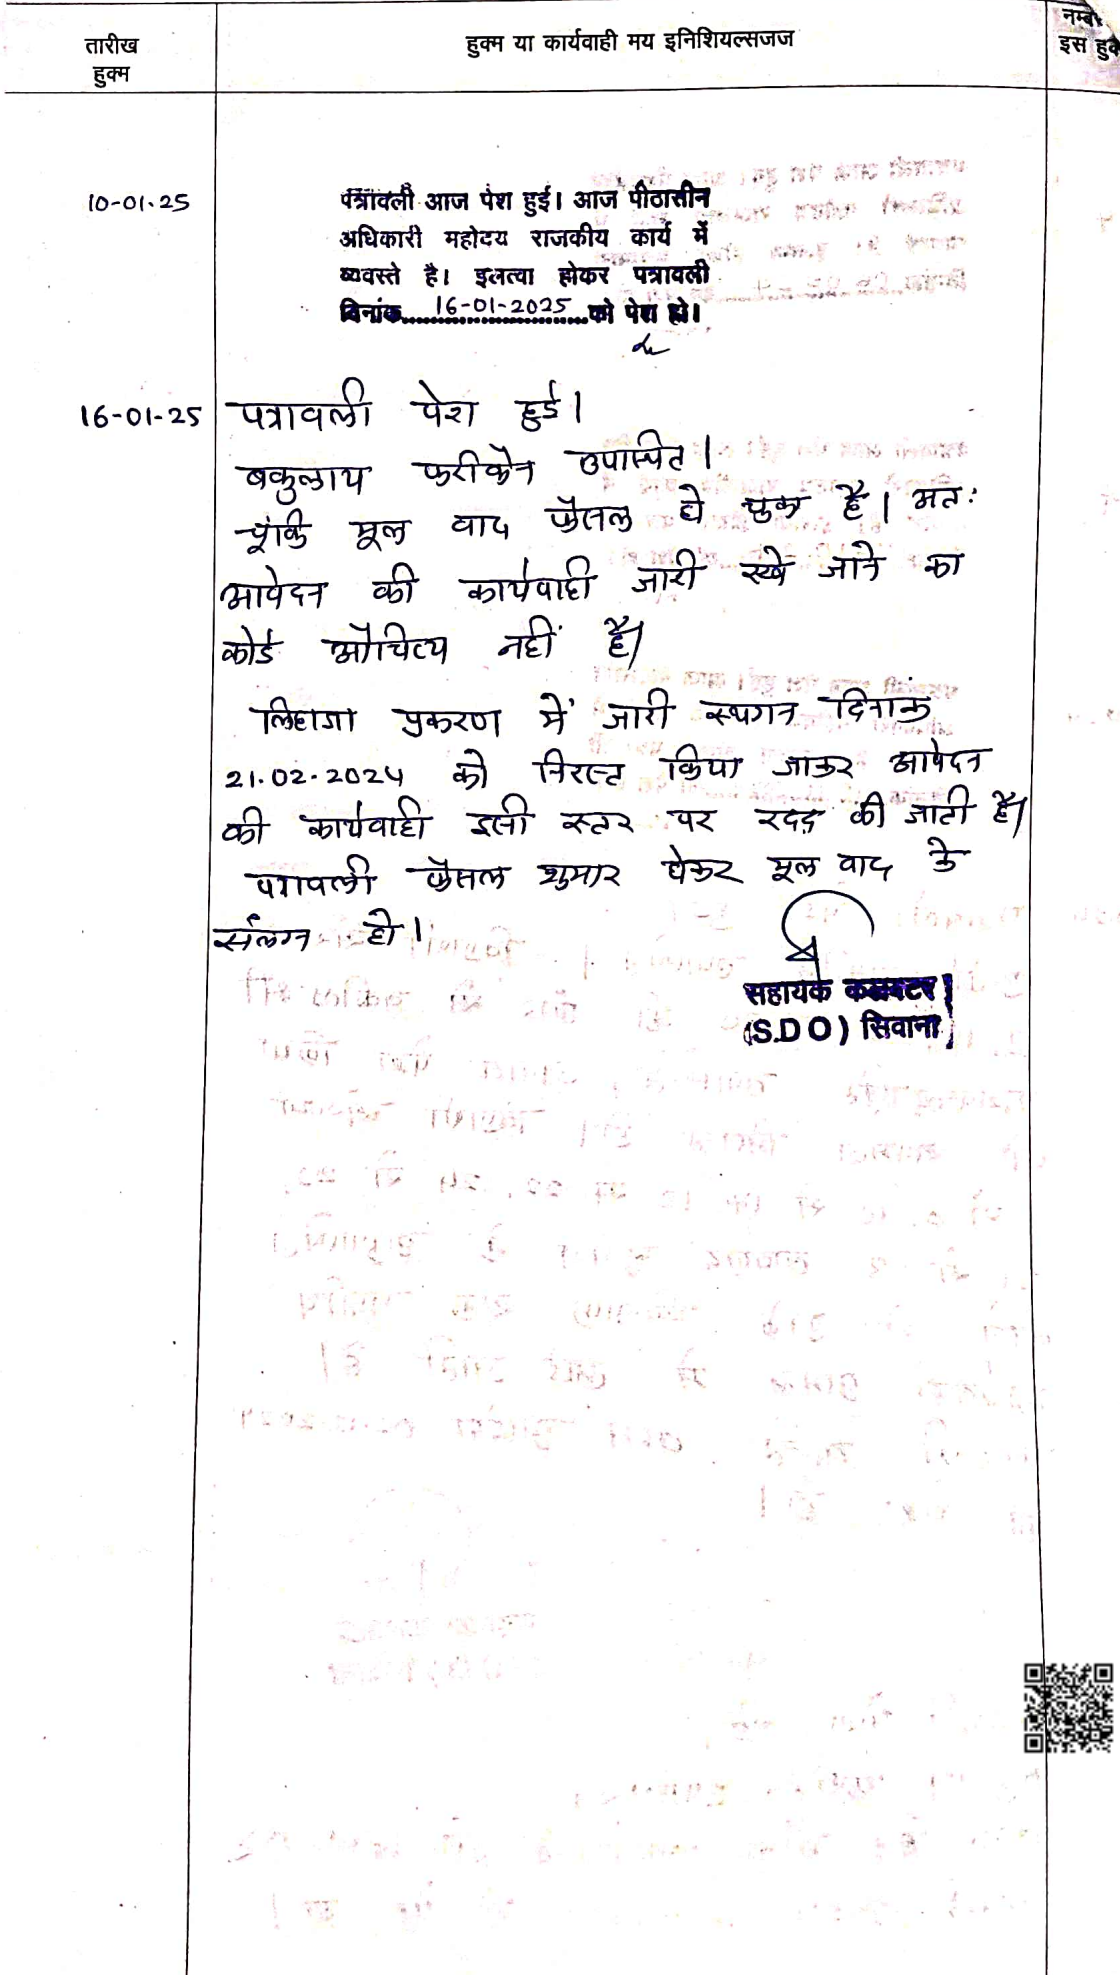 तारीख
हुक्म
हुक्म या कार्यवाही मय इनिशियल्सजज
नम्बर
इस हुक
10-01-25
पत्रावली आज पेश हुई। आज पीठासीन
अधिकारी महोदय राजकीय कार्य में
व्यवस्ते है। इलत्वा होकर पत्रावली
दिनांक 16-01-2025 को पेश हो।
16-01-25
पत्रावली पेश हुई।
वकुलाय फरीकैन उपस्थित।
चूंकि मूल वाद फैसल हो चुका है। अतः
आवेदन की कार्यवाही जारी रखे जाने का
कोई औचित्य नहीं है।
लिहाजा प्रकरण में जारी स्थगन दिनांक
21.02.2024 को निरस्त किया जाकर आवेदन
की कार्यवाही इसी स्तर पर रदद् की जाती है।
पत्रावली फैसल शुमार होकर मूल वाद के
संलग्न हो।
सहायक कलक्टर
(S.D.O) सिवाना